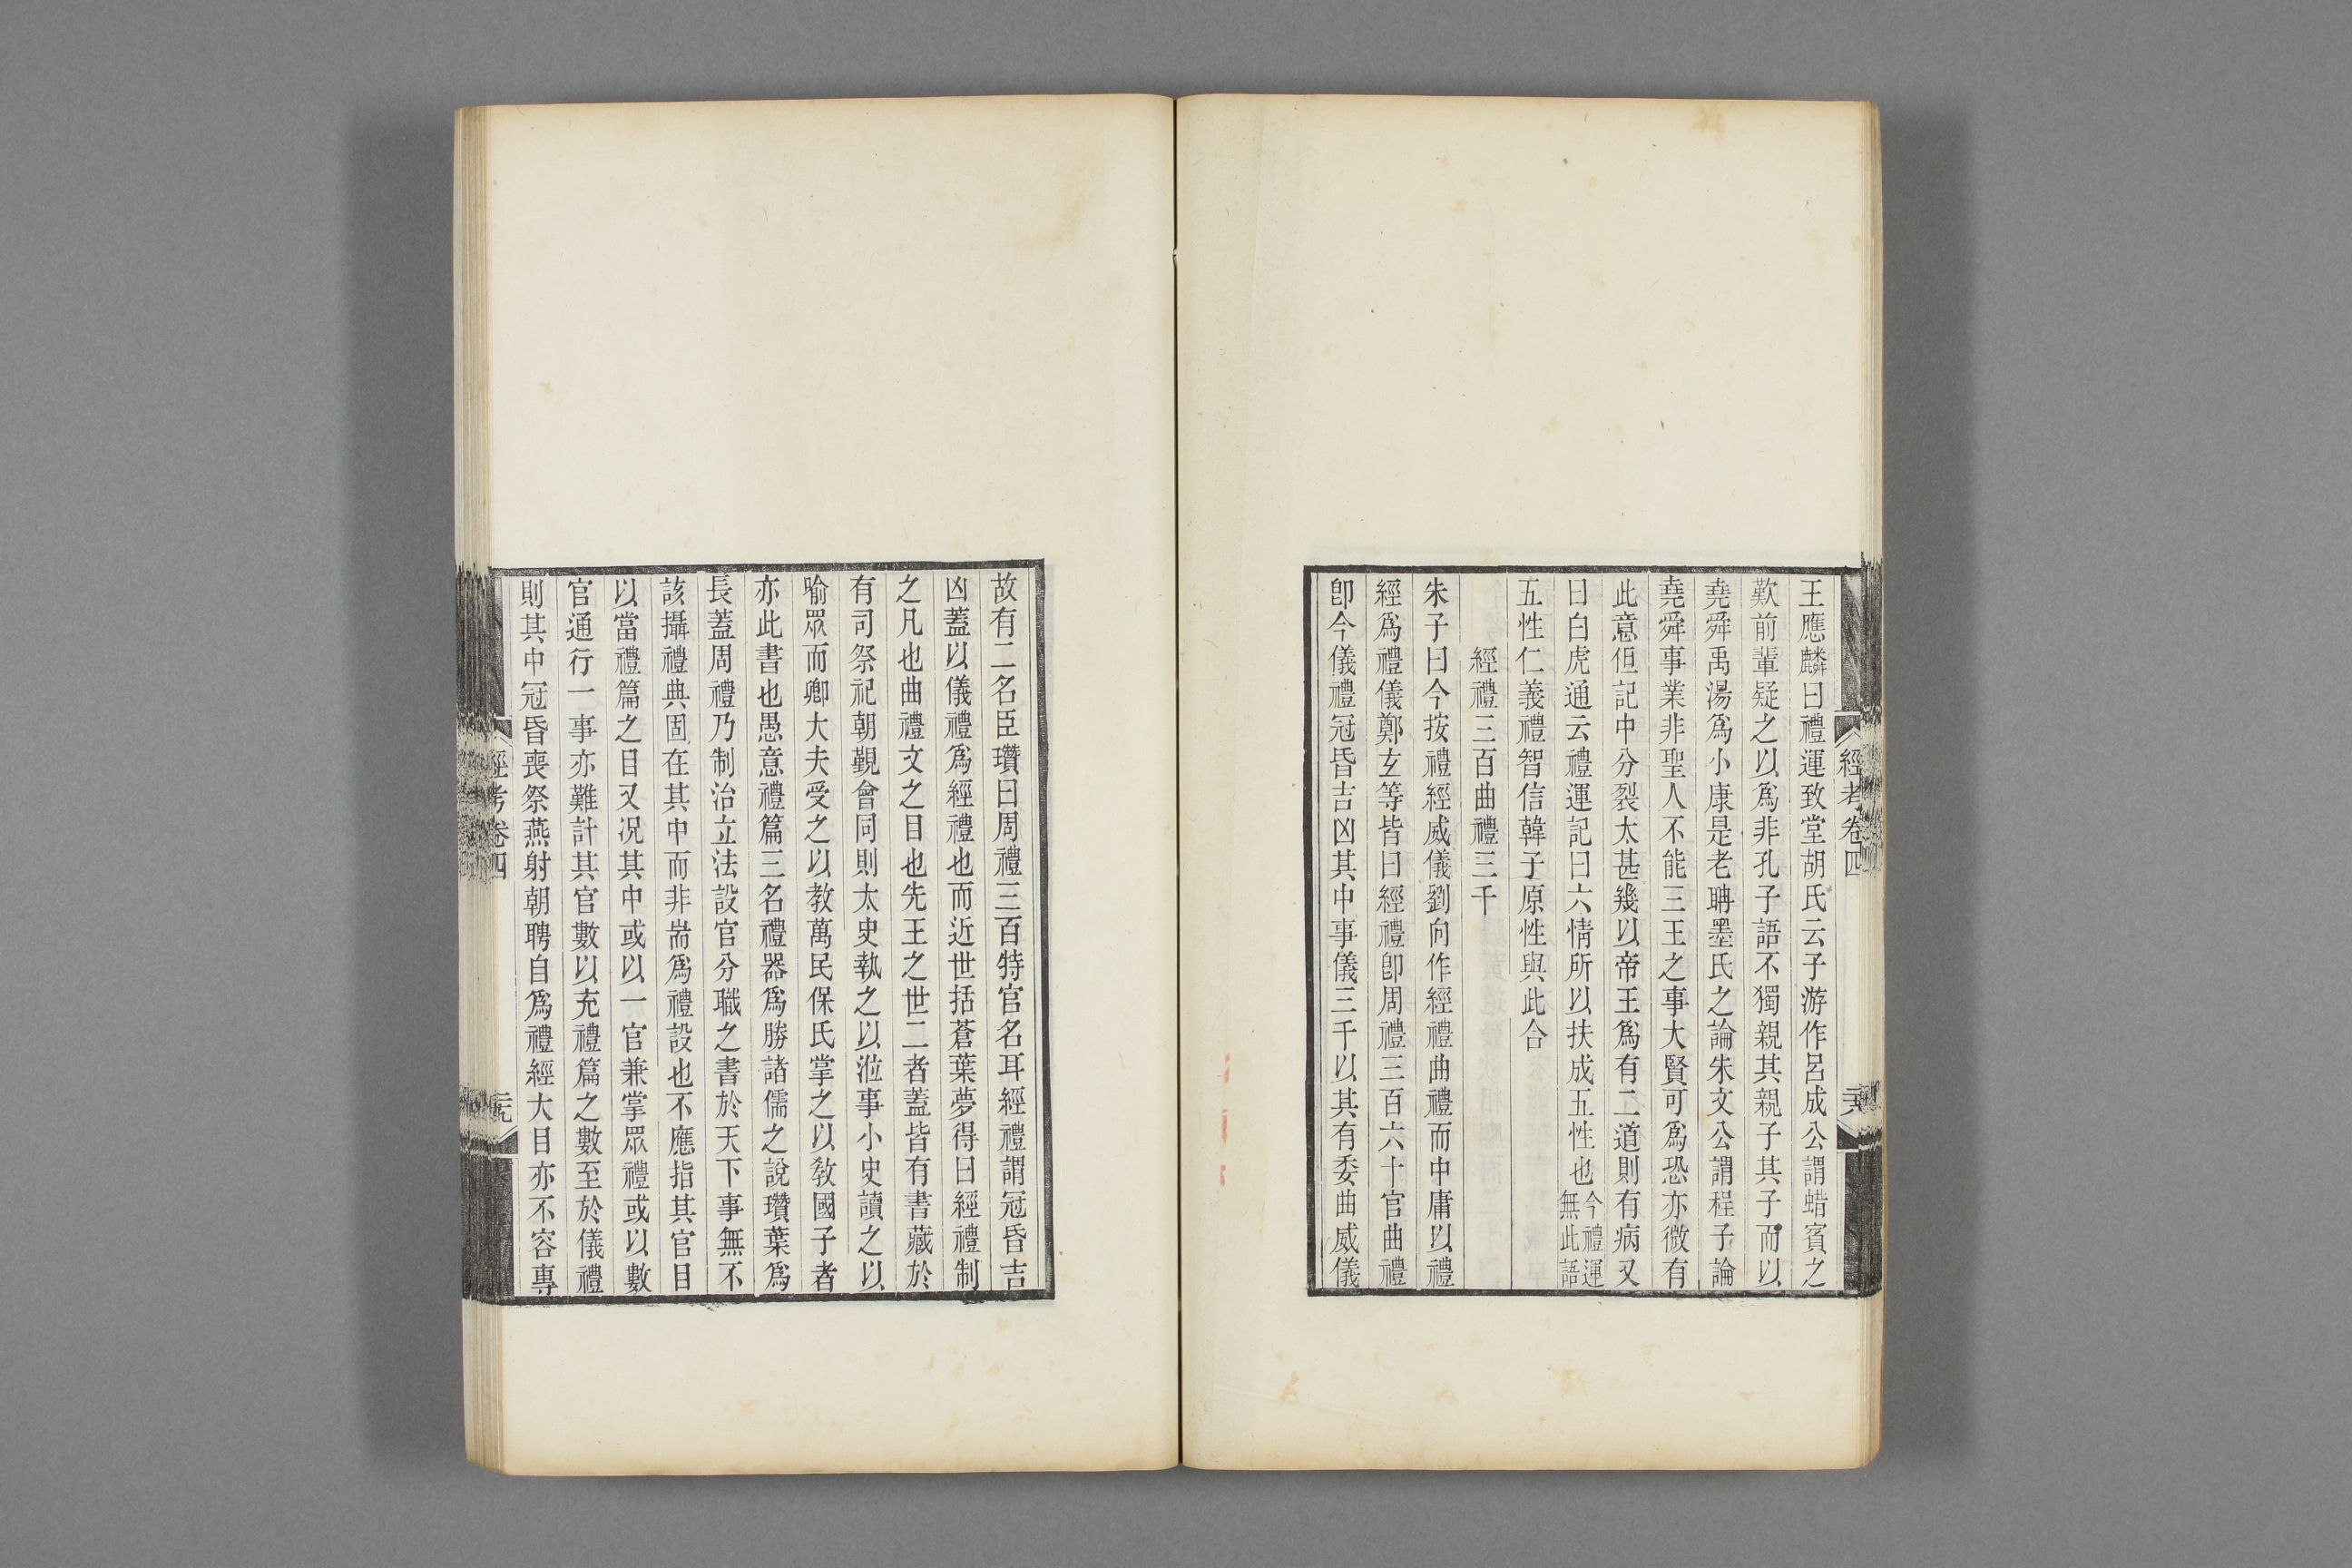 王應麟曰禮運致堂胡氏云子游作呂成公謂蜡賓之
歎前輩疑之以爲非孔子語不獨親其親子其子而以
堯舜禹湯爲小康是老聃墨氏之論朱文公謂程子論
堯舜事業非聖人不能三王之事大賢可爲恐亦微有
此意但記中分裂太甚幾以帝王爲有二道則有病又
曰白虎通云禮運記曰六情所以扶成五性也今禮運無此語
五性仁義禮智信韓子原性與此合
經禮三百曲禮三千
朱子曰今按禮經威儀劉向作經禮曲禮而中庸以禮
經爲禮儀鄭玄等皆曰經禮卽周禮三百六十官曲禮
卽今儀禮冠昏吉凶其中事儀三千以其有委曲威儀
經考卷四
故有二名臣瓚曰周禮三百特官名耳經禮謂冠昏吉
凶蓋以儀禮爲經禮也而近世括蒼葉夢得曰經禮制
之凡也曲禮文之目也先王之世二者蓋皆有書藏於
有司祭祀朝覲會同則太史執之以涖事小史讀之以
喻眾而卿大夫受之以教萬民保氏掌之以教國子者
亦此書也愚意禮篇三名禮器爲勝諸儒之說瓚葉爲
長蓋周禮乃制治立法設官分職之書於天下事無不
該攝禮典固在其中而非耑爲禮設也不應指其官目
以當禮篇之目又况其中或以一官兼掌眾禮或以數
官通行一事亦難計其官數以充禮篇之數至於儀禮
則其中冠昏喪祭燕射朝聘自爲禮經大目亦不容專
經考卷四